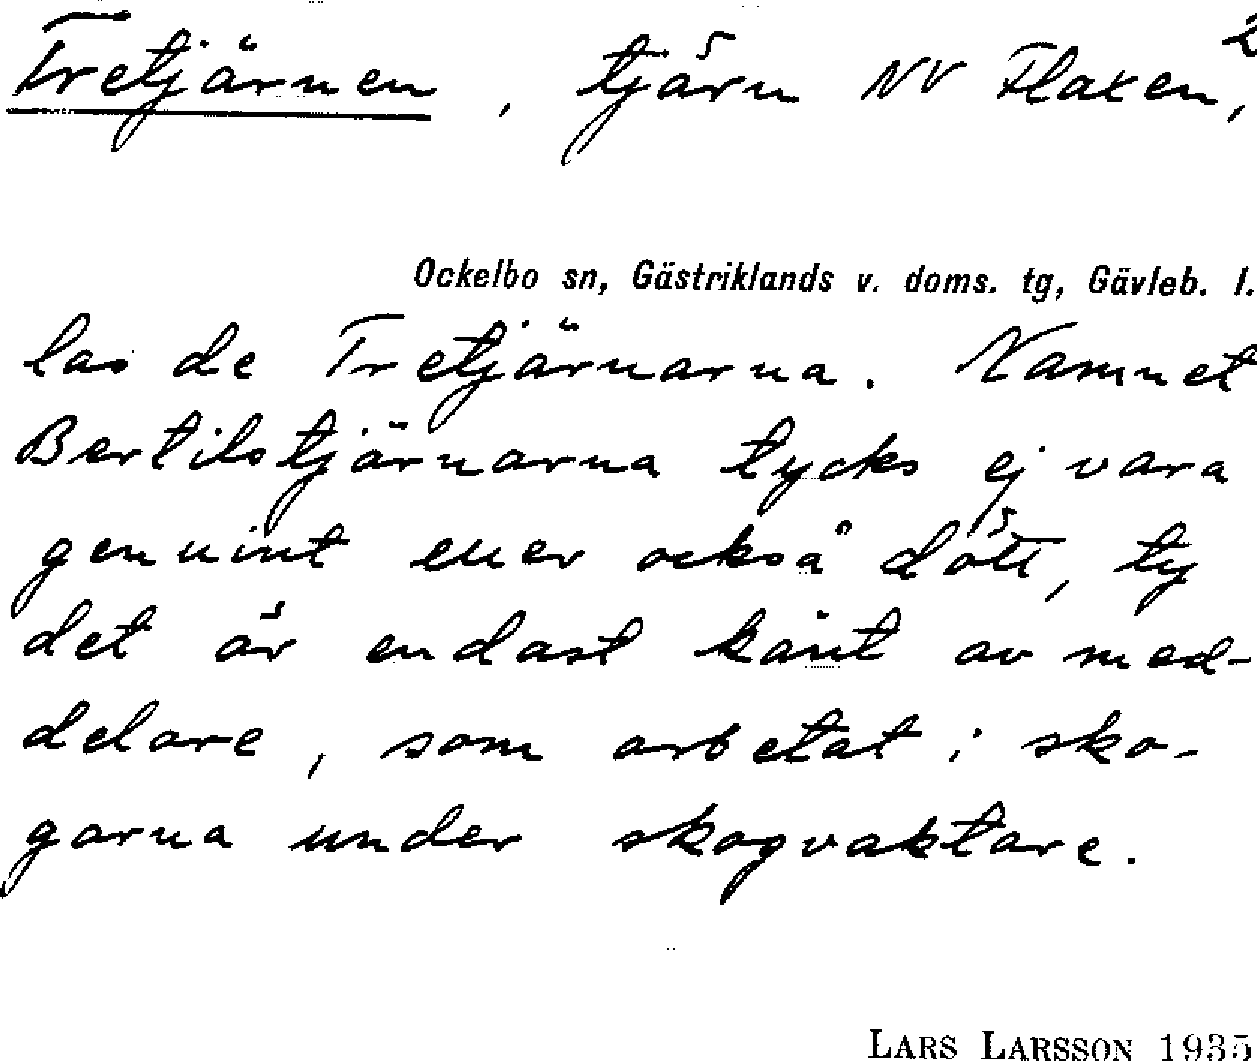 Tretjärnen, tjärn NV Flaxen, 2
Ockelbo sn, Gästriklands v. doms. tg, Gävleb. l.
las de Tretjärnarna. Namnet
Bertilstjärnarna tycks ej vara
genuint eller också dött, ty
det är endast känt av med-
delare, som arbetat i sko-
garna under skogvaktare.
LARS LARSSON 1935